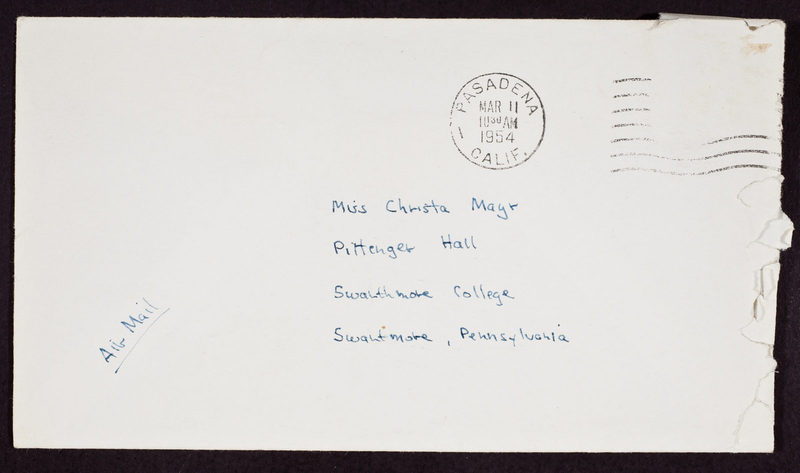 PASADENA
MAR 11
10 30 AM
1954
CALIF.
Miss Christa Mayr
Pittenger Hall
Swarthmore College
Swartmore, Pennsylvania
Air Mail